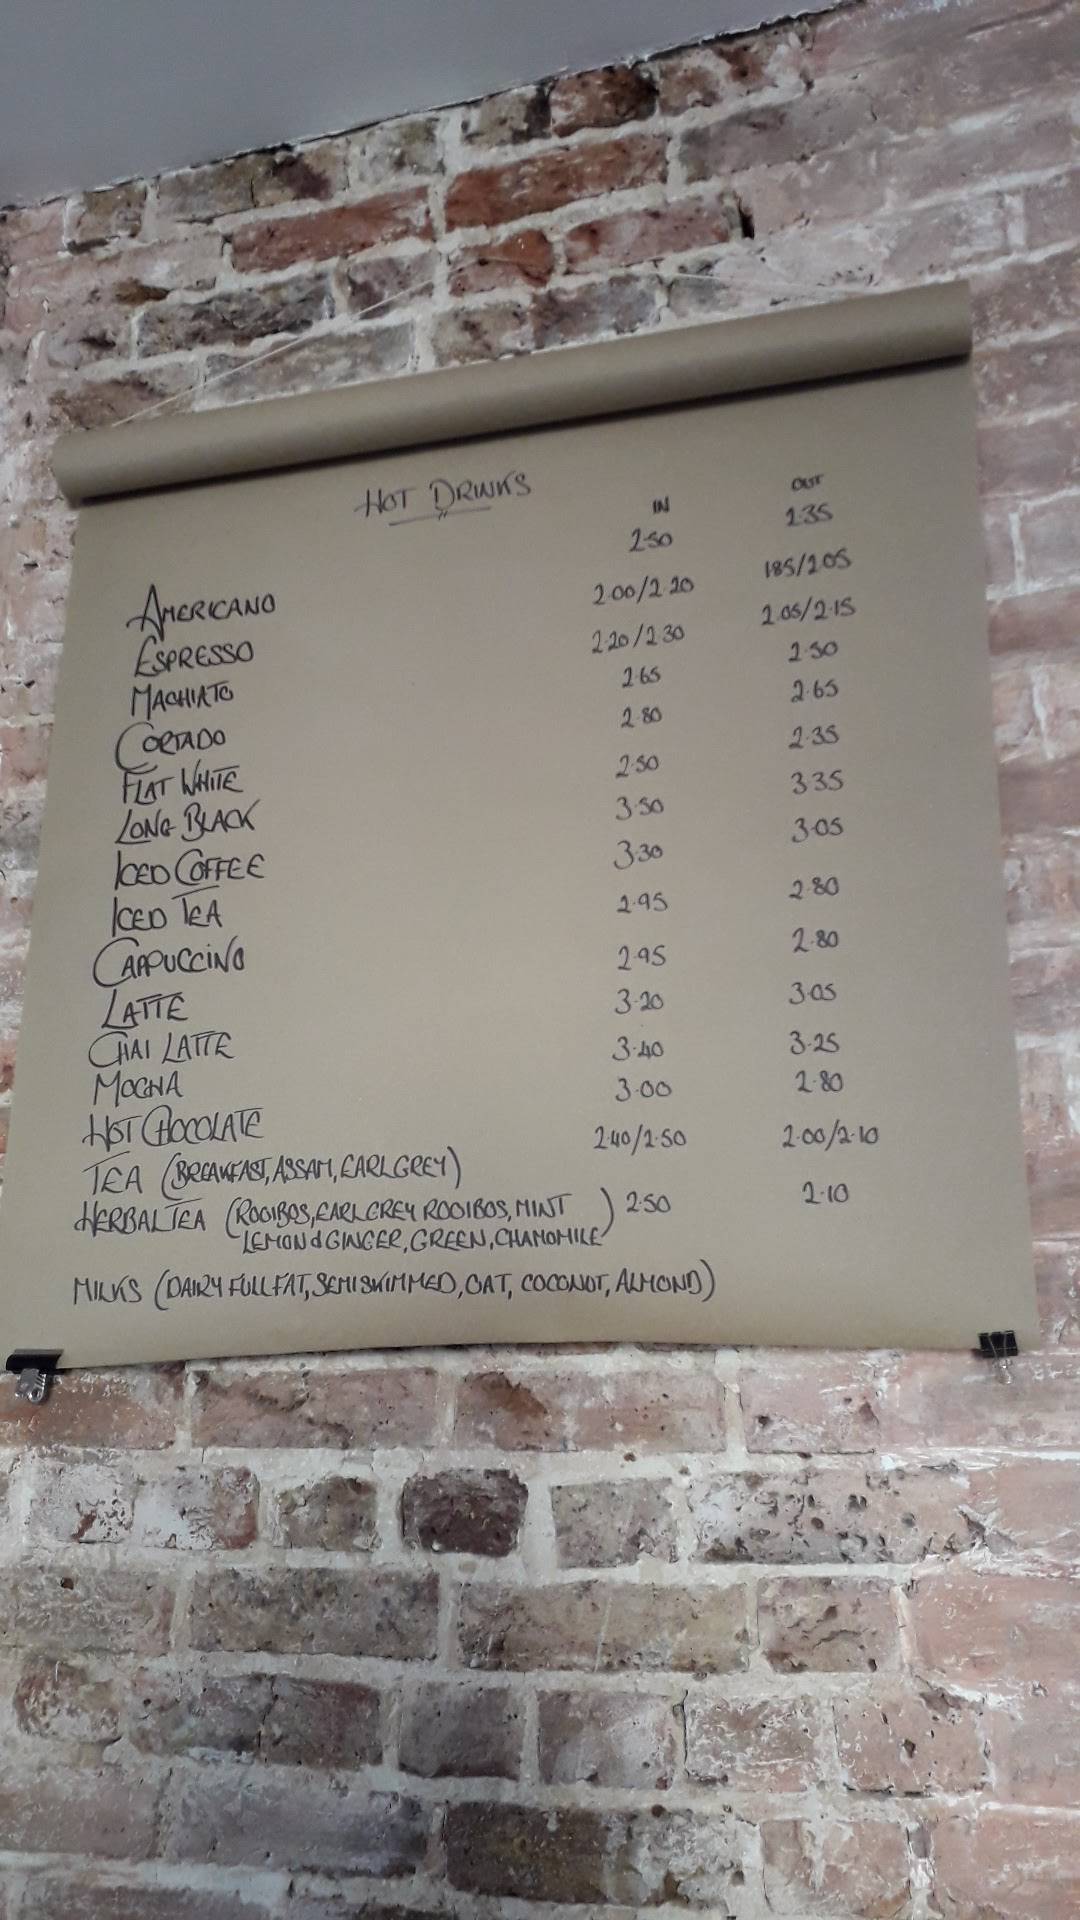 HOT DRINKS
IN OUT
AMERICANO 2.50 2.35
ESPRESSO 2.00/2.20 185/205
MACHIATO 2.20/2.30 2.05/2.15
CORTADO 2.65 2.50
FLAT WHITE 2.80 2.65
LONG BLACK 2.50 2.35
ICED COFFEE 3.50 3.35
ICED TEA 3.30 3.05
CAPPUCCINO 2.95 2.80
LATTE 2.95 2.80
CHAI LATTE 3.20 3.05
MOCHA 3.40 3.25
HOT CHOCOLATE 3.00 2.80
TEA (BREAKFAST, ASSAM, EARL GREY) 2.40/2.50 2.00/2.10
HERBAL TEA (ROOIBOS, EARL GREY ROOIBOS, MINT 2.50 2.10
LEMON & GINGER, GREEN, CHAMOMILE)
MILKS (DAIRY FULL FAT, SEMI SKIMMED, OAT, COCONUT, ALMOND)